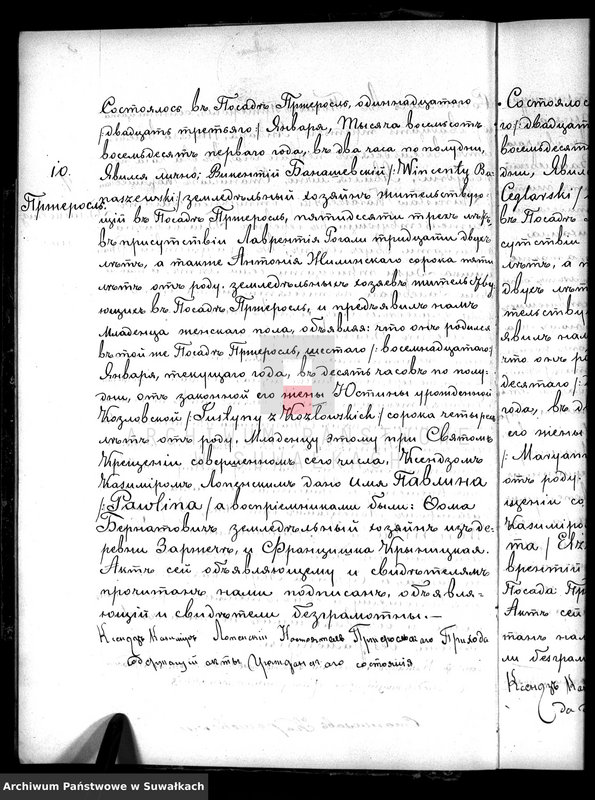 10.
Пржеросль.
Состоялось въ Посадѣ Пржеросль, одиннадцатаго
/:двадцать третьяго:/ Января, тысяча восемьсотъ
восемьдесятъ перваго года, въ два часа по полудни,
Явился лично; Викентій Банашевскій /:Wincenty Ba-
naszewski:/ земледѣльный хозяинъ жительствую-
щій въ Посадѣ Пржеросль, пятидесяти трехъ лѣтъ,
въ присутствіи Лаврентія Рогали тридцати двухъ
лѣтъ, а также Антонія Жилинскаго сорока пяти
лѣтъ отъ роду, земледѣльныхъ хозяевъ жительству-
ющихъ въ Посадѣ Пржеросль, и предъявилъ намъ
младенца женскаго пола, объявляя: что онъ родился
въ той же Посадѣ Пржеросль, шестаго /:восемнадцатаго:/
Января, текущаго года, въ десять часовъ по полу-
дни, отъ законной его жены Юстины урожденной
Козловской /:Justyny z Kozłowskich:/ сорока четырехъ
лѣтъ отъ роду. Младенцу этому при Святомъ
Крещеніи совершенномъ сего числа, Ксендзомъ
Казиміромъ Лопенскимъ дано имя Павлина
/:Pawlina:/ а воспріемниками были: Ѳома
Бернатовичъ земледѣльный хозяинъ изъ де-
ревни Заржече, и Францишка Крыницкая.
Актъ сей объявляющему и свидѣтелямъ
прочитанъ нами подписанъ, объявля-
ющій и свидѣтели безграмотны.—
Ксендзъ Казиміръ Лопенскій Настоятель Пржеросльскаго Прихода
Содержащій акты Гражданскаго состоянія
Состоялось
го /:двадцат
восемьдесят
дни, Явил
Ceglarski /:
въ Посадѣ
сутствіи
лѣтъ, а т
двухъ лѣт
тельству
явилъ нам
что онъ р
десятаго /:
года, въ д
его жены
/:Maryann
отъ роду.
щеніи со
Казиміро
та /: Elż
врентій
Посада Пр
Актъ сей
танъ на
ли безграм
Ксендзъ Ка
Archiwum Państwowe w Suwałkach